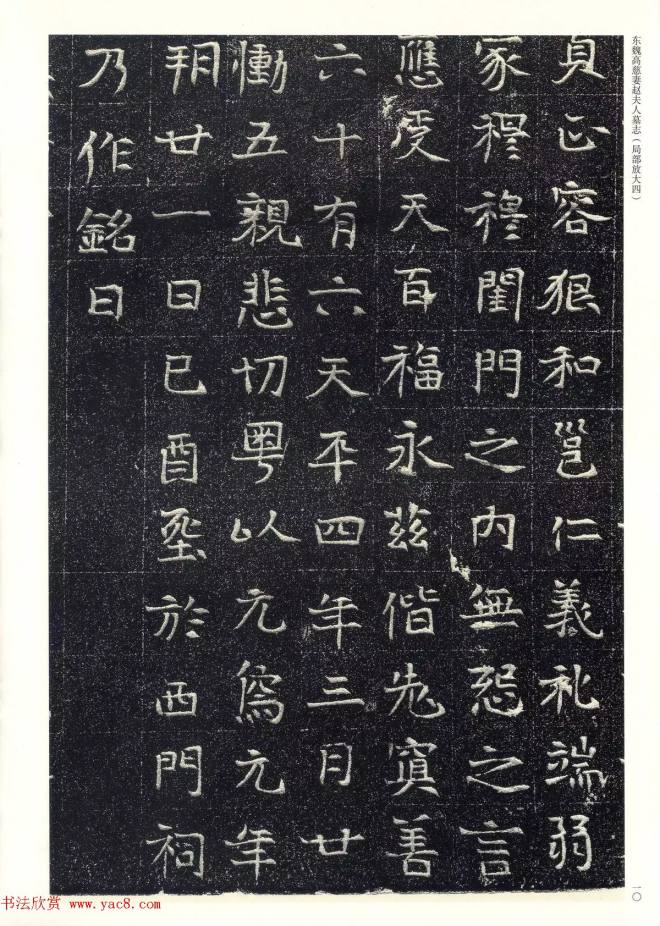 东魏高慈妻赵夫人墓志（局部放大四）
貞正容狠和邕仁義礼端弱
家穆穆閨門之内無怨之言
應受天百福永兹偕老寘善
六十有六天平四年三月廿
慟五親悲切粤以元象元年
朔廿一日己酉於西門祠
乃作銘曰
一〇
书法欣赏 www.yac8.com